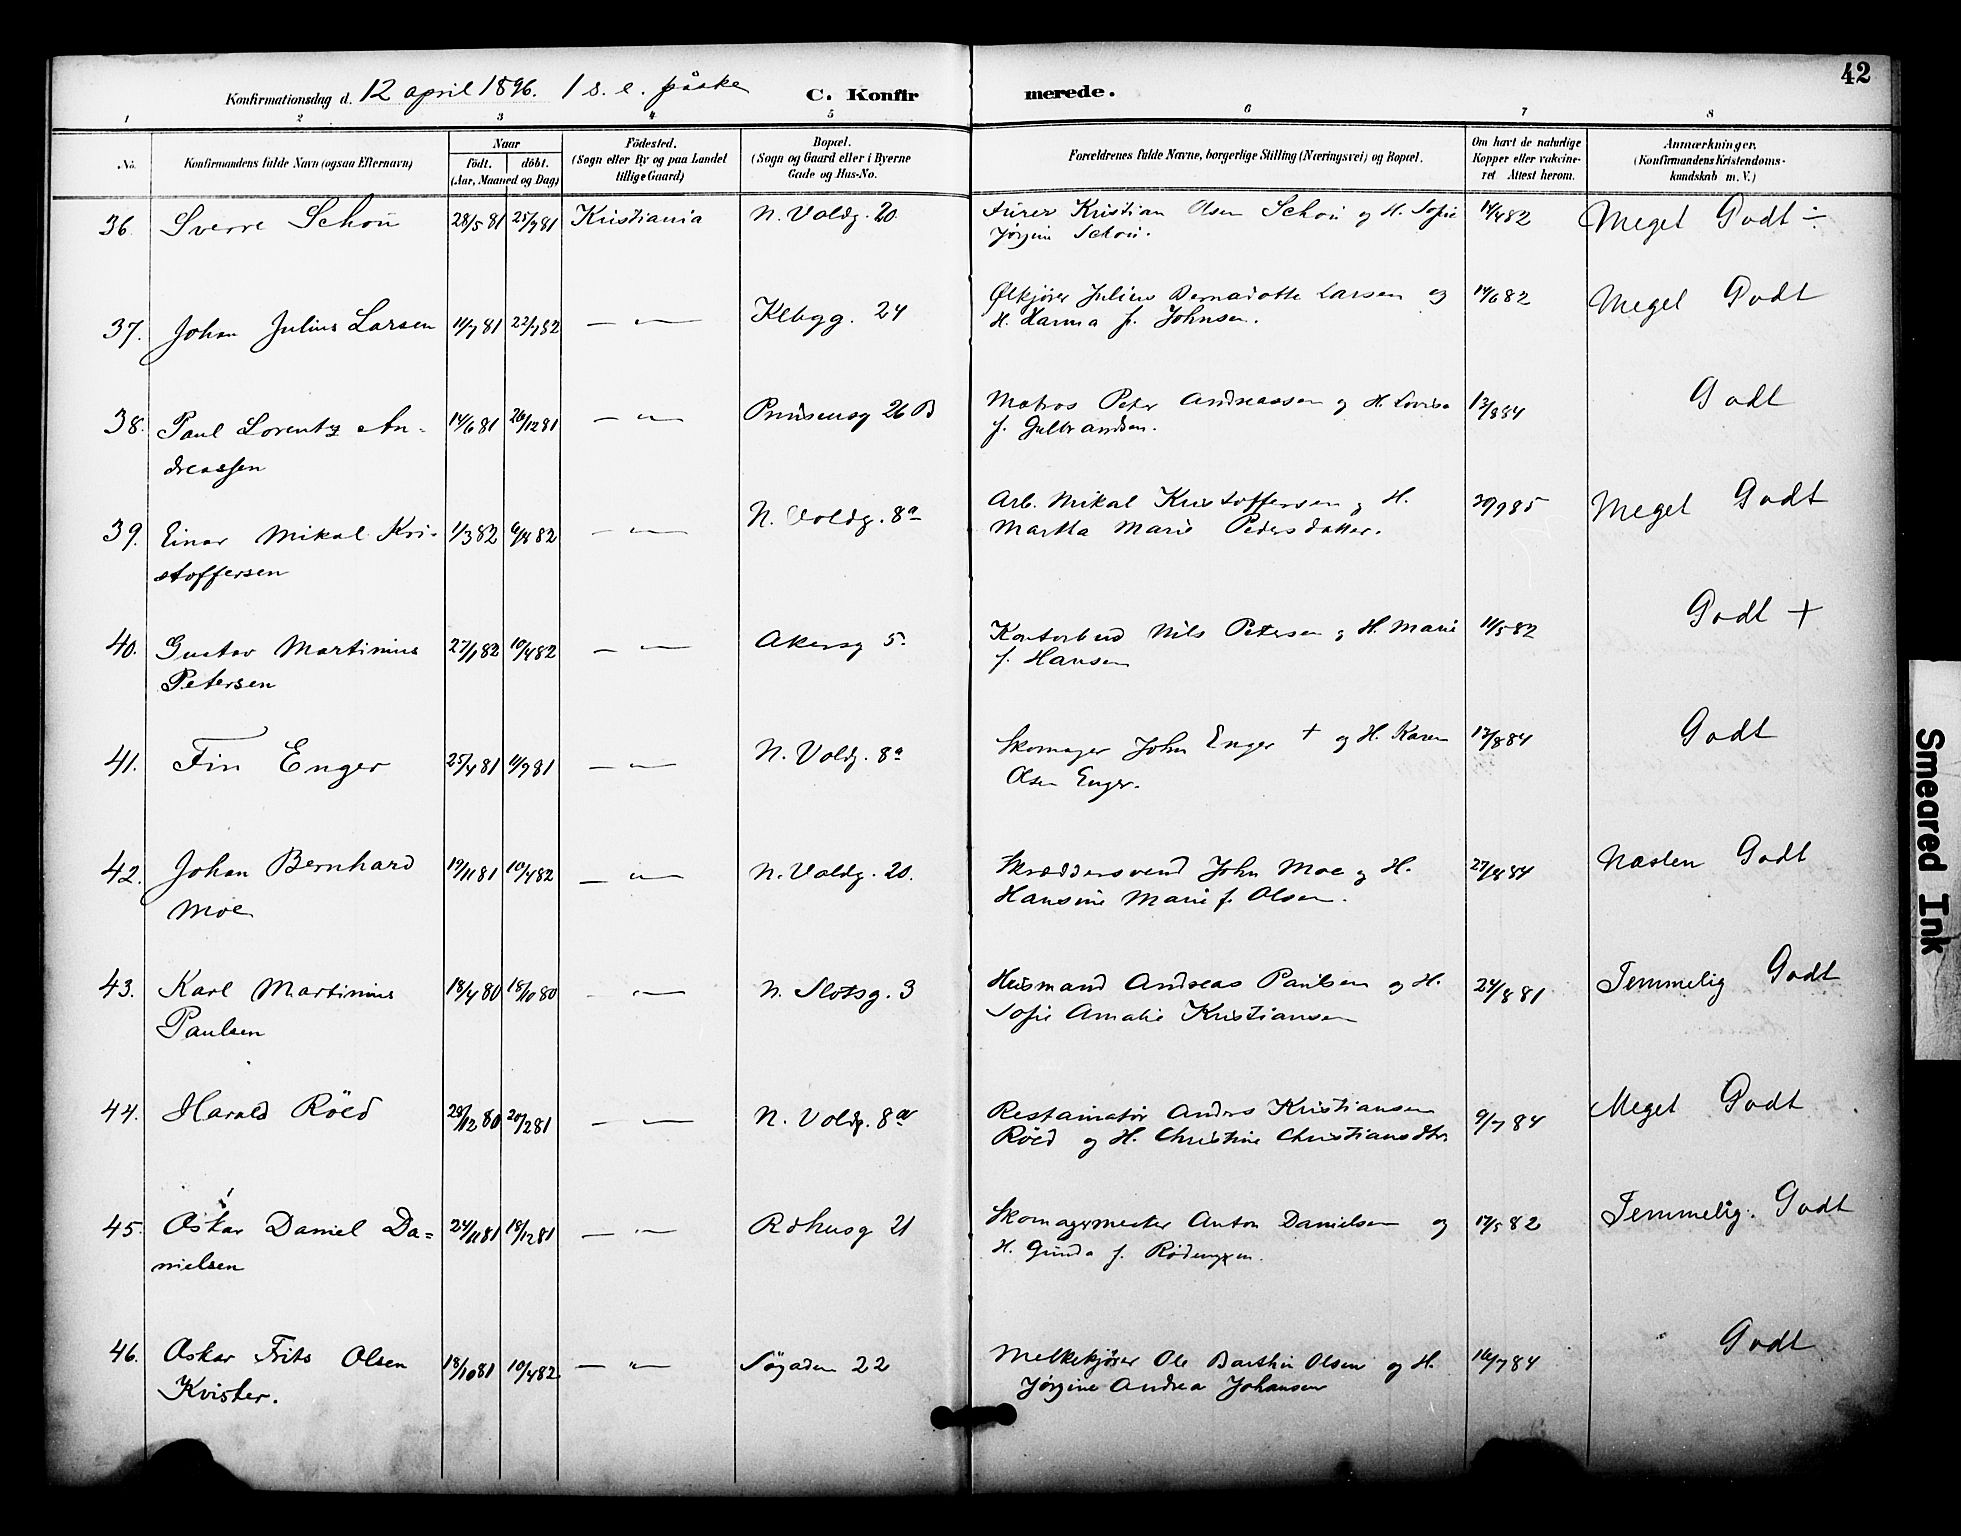 42
Konfirmationsdag d. 12 april 1896. 1 s. e. påske C. Konfirmerede.
1 2 3 4 5 6 7 8
No. Konfirmandens fulde Navn (ogsaa Efternavn) Naar født. døbt. (Aar, Maaned og Dag) Fødested. (Sogn eller By og paa Landet tillige Gaard) Bopæl. (Sogn og Gaard eller i Byerne Gade og Hus-No. Forældrenes fulde Navne, borgerlige Stilling (Næringsvei) og Bopæl. Om havt de naturlige Kopper eller vakcineret Attest herom. Anmærkninger. (Konfirmandens Kristendomskundskab m. V.)
36. Sverre Schou 28/5 81 25/9 81 Kristiania N. Voldg. 20 Kristian Olsen Schou og H. Sofie 14/4 82 Meget Godt ÷
Jørgine Schou.
37. Johan Julius Larsen 11/7 81 22/1 82 — " — Kebgg. 24 Ølkjører Julius Bernadotte Larsen og 14/6 82 Meget Godt
H. Hanna f. Johnsen.
38. Paul Lorentz An- 14/6 81 26/12 81 — " — Prinsensg 26 B Matros Peter Andreassen og H. Lovise 13/8 84 Godt
dreassen f. Gulbrandsen.
39. Einar Mikal Kri- 1/3 82 6/8 82 — " — N. Voldg. 8a Arb. Mikal Kristoffersen og H. 30/9 85 Meget Godt
stoffersen Martha Marie Pedersdatter.
40. Gustav Martinius 27/1 82 10/4 82 — " — Akersg 5. Kontorbud Nils Petersen og H. Marie 11/5 82 Godt +
Petersen f. Hansen
41. Fin Enger 25/4 81 11/9 81 — " — N. Voldg. 8a Skomager John Enger + og H. Karen 13/8 84 Godt
Olsen Enger.
42. Johan Bernhard 19/11 81 10/4 82 — " — N. Voldg. 20. Skræddersvend John Moe og H. 27/8 84 Næsten Godt
Moe Hansine Marie f. Olsen.
43. Karl Martinius 18/4 80 18/10 80 — " — N. Slotsg. 3 Husmand Andreas Paulsen og H. 24/8 81 Temmelig Godt
Paulsen Sofie Amalie Kristiansen
44. Harald Röed 28/12 80 20/2 81 — " — N. Voldg. 8a Restauratør Anders Kristiansen 9/7 84 Meget Godt
Röed og H. Christine Christiansdtr
45. Oskar Daniel Da= 24/11 81 18/12 81 — " — Rdhusg 21 Skomagermester Anton Danielsen og 17/5 82 Temmelig Godt
nielsen H. Gunda f.
46. Oskar Frits Olsen 18/10 81 10/4 82 — " — Søgaden 22 Melkekjører Ole Barthin Olsen og H. 16/7 84 Godt
Kvister. Jørgine Andrea Johansen
Smeared Ink